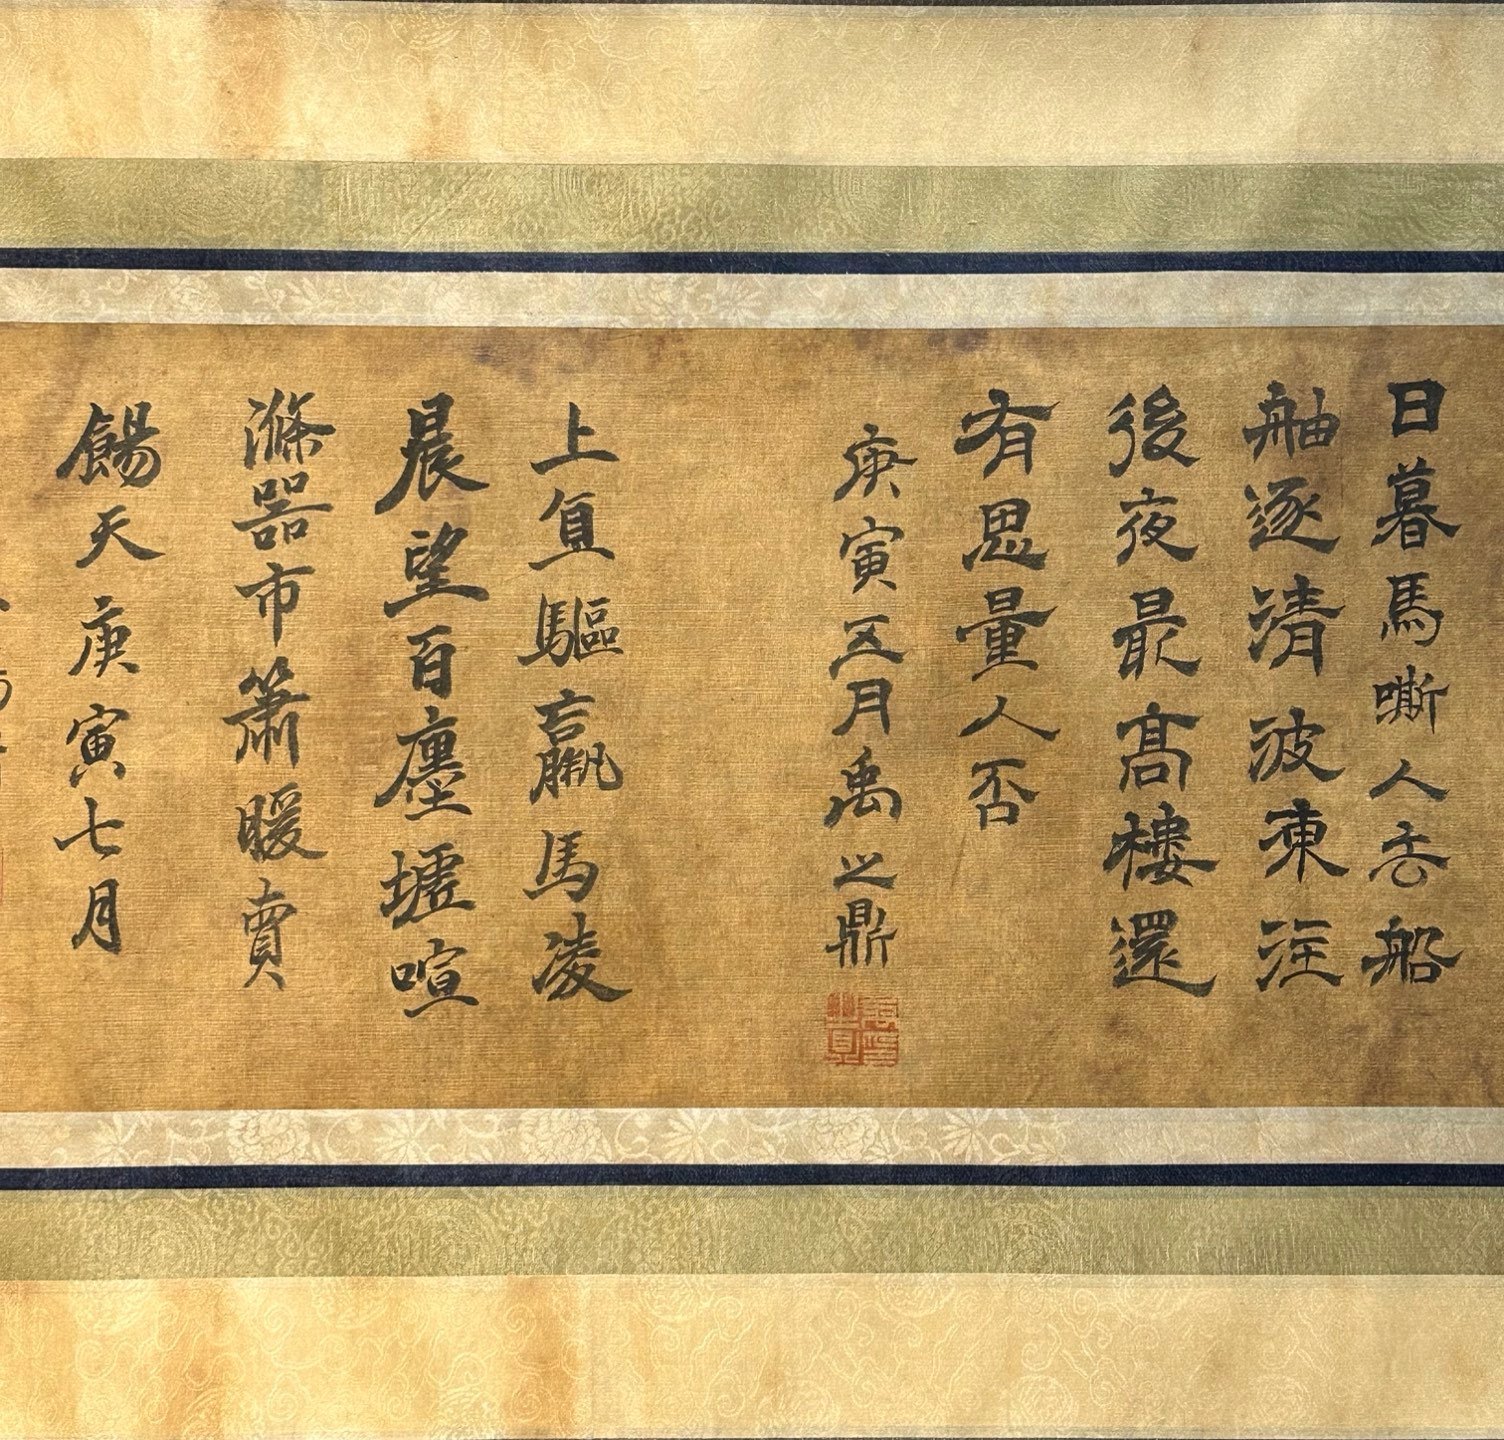 日暮馬嘶人去船
舳逐清波東注
後夜最高樓還
有思量人否
庚寅五月禹之鼎
上負驅羸馬凌
晨望百廛墟喧
滌器市簫暖賣
餳天庚寅七月